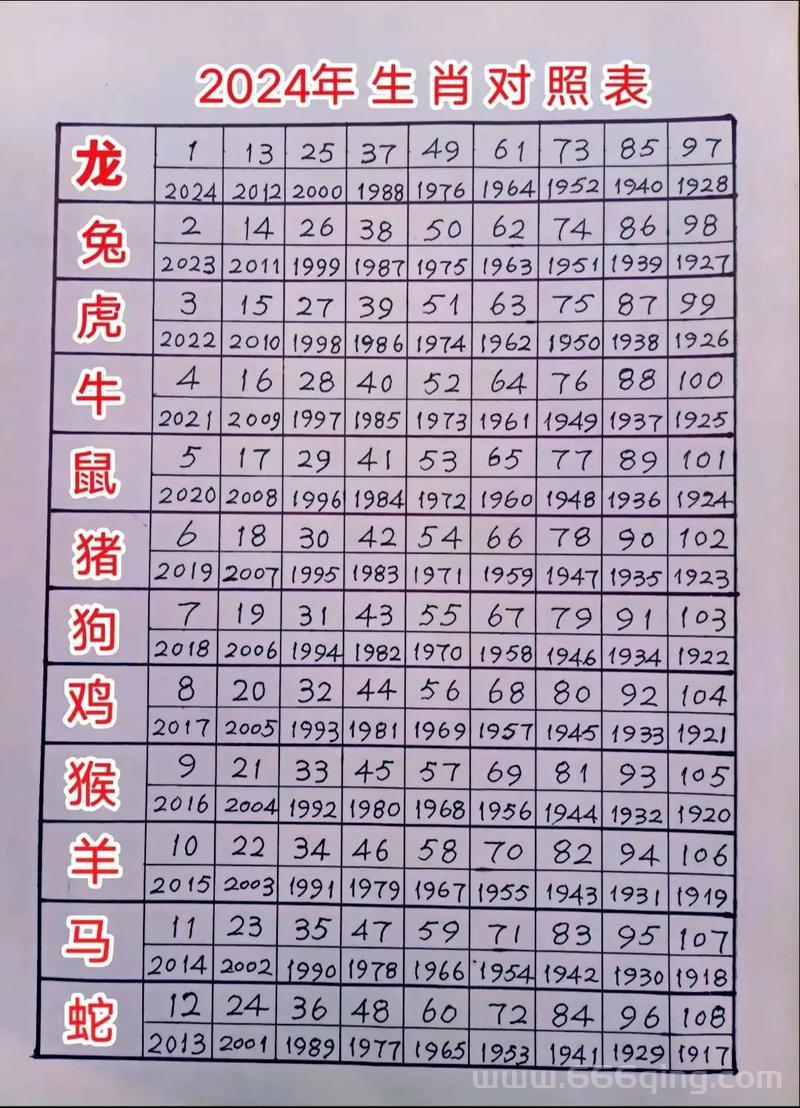 2024年生肖对照表
龙 1 13 25 37 49 61 73 85 97
2024 2012 2000 1988 1976 1964 1952 1940 1928
兔 2 14 26 38 50 62 74 86 98
2023 2011 1999 1987 1975 1963 1951 1939 1927
虎 3 15 27 39 51 63 75 87 99
2022 2010 1998 1986 1974 1962 1950 1938 1926
牛 4 16 28 40 52 64 76 88 100
2021 2009 1997 1985 1973 1961 1949 1937 1925
鼠 5 17 29 41 53 65 77 89 101
2020 2008 1996 1984 1972 1960 1948 1936 1924
猪 6 18 30 42 54 66 78 90 102
2019 2007 1995 1983 1971 1959 1947 1935 1923
狗 7 19 31 43 55 67 79 91 103
2018 2006 1994 1982 1970 1958 1946 1934 1922
鸡 8 20 32 44 56 68 80 92 104
2017 2005 1993 1981 1969 1957 1945 1933 1921
猴 9 21 33 45 57 69 81 93 105
2016 2004 1992 1980 1968 1956 1944 1932 1920
羊 10 22 34 46 58 70 82 94 106
2015 2003 1991 1979 1967 1955 1943 1931 1919
马 11 23 35 47 59 71 83 95 107
2014 2002 1990 1978 1966 1954 1942 1930 1918
蛇 12 24 36 48 60 72 84 96 108
2013 2001 1989 1977 1965 1953 1941 1929 1917
www.666qing.com